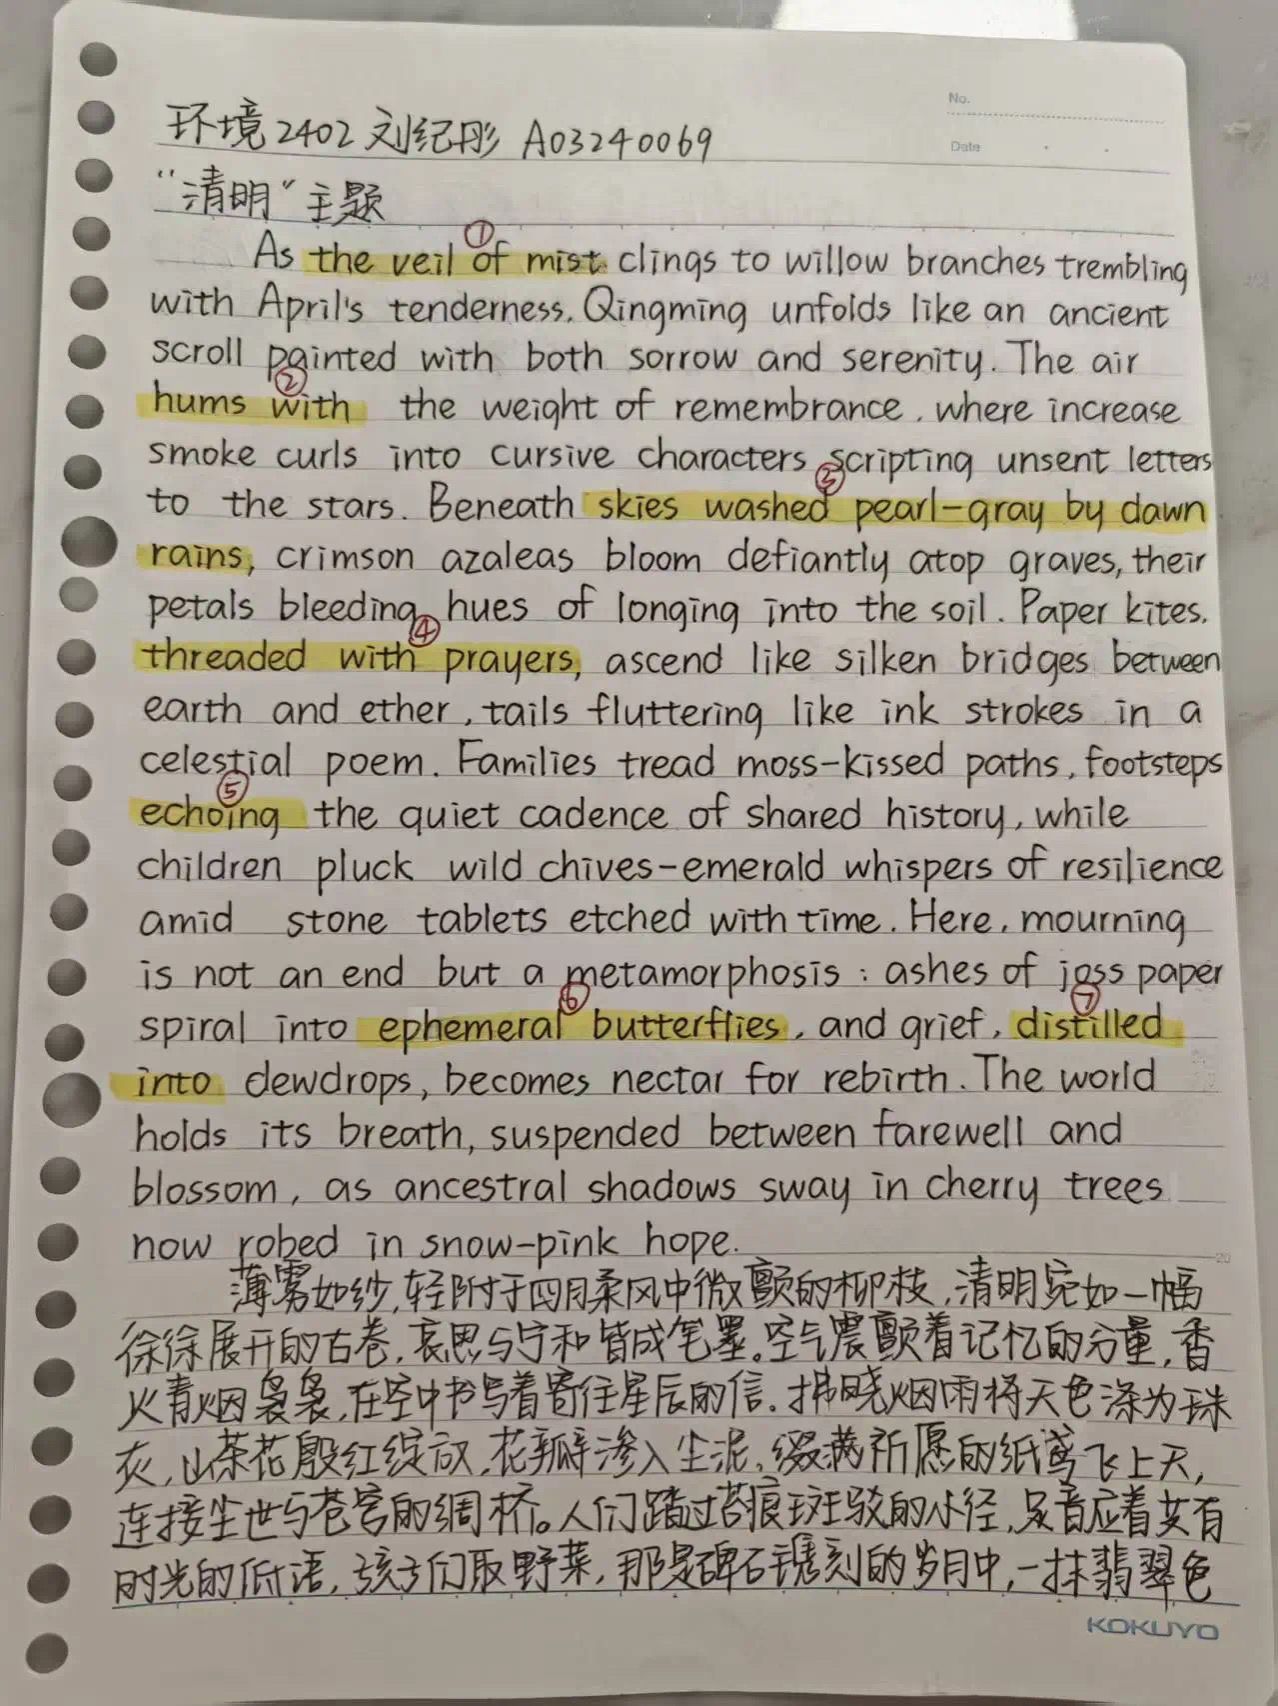 No.
Date
环境2402 刘纪彤 A03240069
“清明”主题
①
As the veil of mist clings to willow branches trembling
with April's tenderness. Qingming unfolds like an ancient
scroll painted with both sorrow and serenity. The air
②
hums with the weight of remembrance, where increase
smoke curls into cursive characters scripting unsent letters
③
to the stars. Beneath skies washed pearl-gray by dawn
rains, crimson azaleas bloom defiantly atop graves, their
petals bleeding hues of longing into the soil. Paper kites,
④
threaded with prayers, ascend like silken bridges between
earth and ether, tails fluttering like ink strokes in a
celestial poem. Families tread moss-kissed paths, footsteps
⑤
echoing the quiet cadence of shared history, while
children pluck wild chives-emerald whispers of resilience
amid stone tablets etched with time. Here, mourning
is not an end but a metamorphosis: ashes of joss paper
⑥ ⑦
spiral into ephemeral butterflies, and grief, distilled
into dewdrops, becomes nectar for rebirth. The world
holds its breath, suspended between farewell and
blossom, as ancestral shadows sway in cherry trees
now robed in snow-pink hope.
20
薄雾如纱,轻附于四月柔风中微颤的柳枝,清明宛如一幅
徐徐展开的古卷,哀思与宁和皆成笔墨。空气震颤着记忆的分量,香
火青烟袅袅,在空中书写着寄往星辰的信。拂晓烟雨将天色涤为珠
灰,山茶花殷红绽放,花瓣渗入尘泥,缀满祈愿的纸鸢飞上天,
连接尘世与苍穹的绸桥。人们踏过苔痕斑驳的小径,足音应着共有
时光的低语,孩子们取野菜,那是碑石镌刻的岁月中,一抹翡翠色
KOKUYO